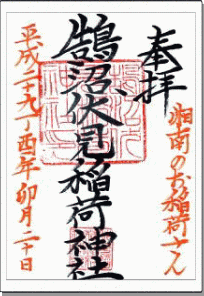 奉拝
湘南のお稲荷さん
鵠沼伏見稲荷神社
平成二十九丁酉年卯月二十日